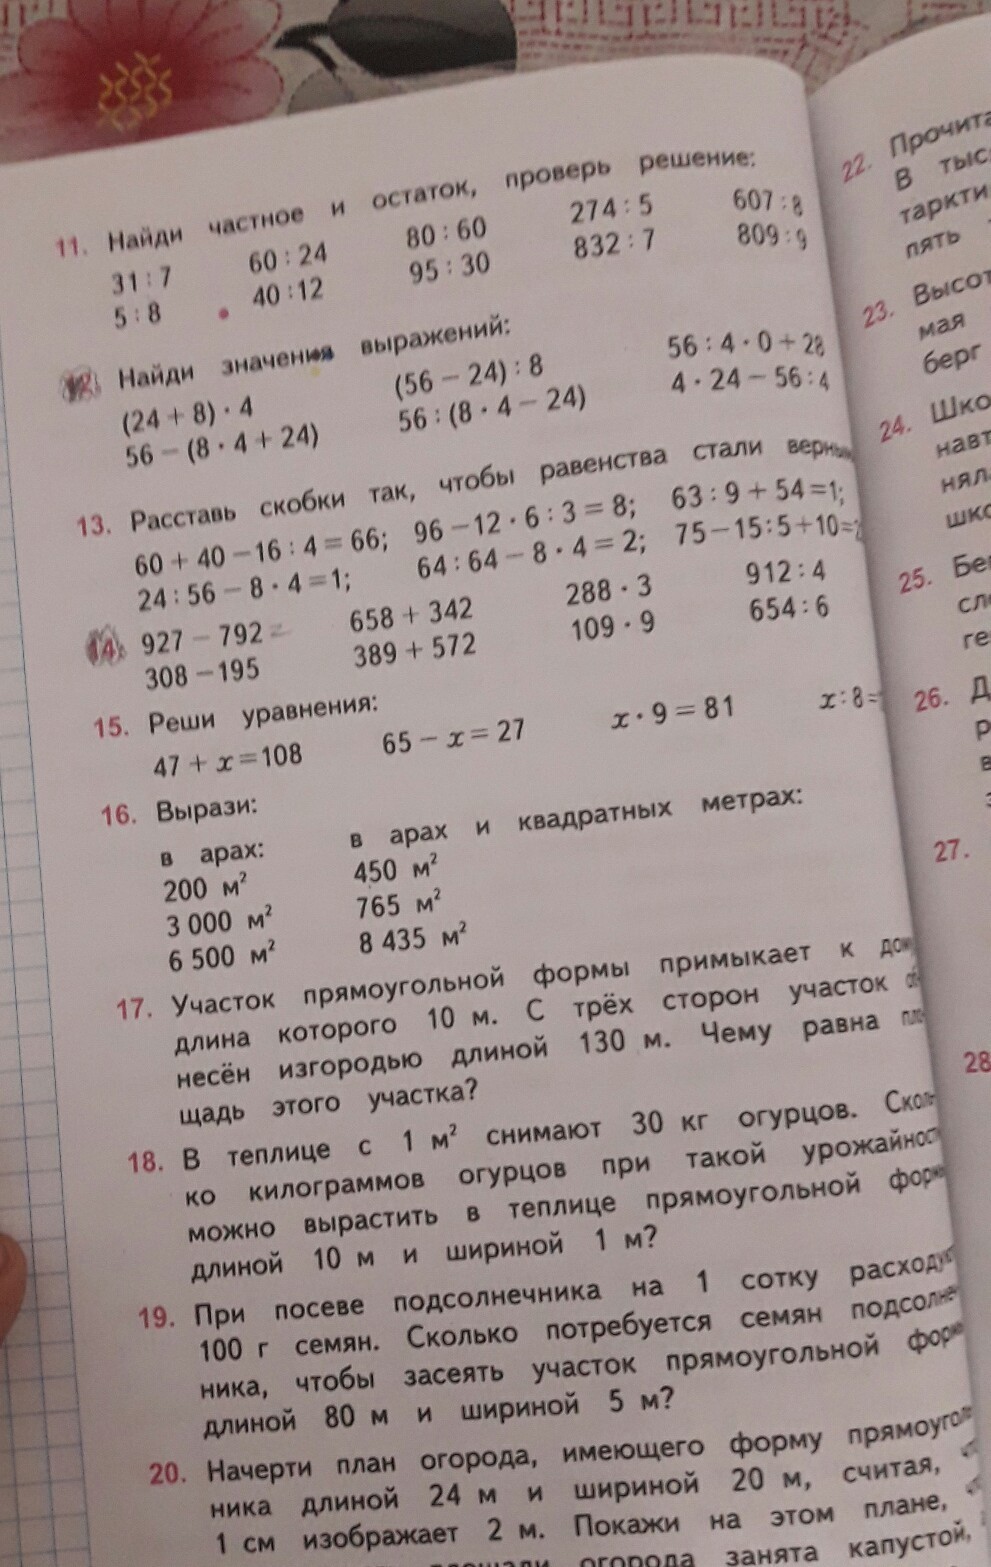 11. Найди частное и остаток, проверь решение:
31 : 7 60 : 24 80 : 60 274 : 5 607 : 8
5 : 8 40 : 12 95 : 30 832 : 7 809 : 9
12. Найди значения выражений:
(24 + 8) · 4 (56 − 24) : 8 56 : 4 · 0 + 28
56 − (8 · 4 + 24) 56 : (8 · 4 − 24) 4 · 24 − 56 : 4
13. Расставь скобки так, чтобы равенства стали
60 + 40 − 16 : 4 = 66; 96 − 12 · 6 : 3 = 8; 63 : 9 + 54 = 1;
24 : 56 − 8 · 4 = 1; 64 : 64 − 8 · 4 = 2; 75 − 15 : 5 + 10 =
14. 927 − 792 = 658 + 342 288 · 3 912 : 4
308 − 195 389 + 572 109 · 9 654 : 6
15. Реши уравнения:
47 + x = 108 65 − x = 27 x · 9 = 81 x : 8 =
16. Вырази:
в арах: в арах и квадратных метрах:
200 м² 450 м²
3 000 м² 765 м²
6 500 м² 8 435 м²
17. Участок прямоугольной формы примыкает к
длина которого 10 м. С трёх сторон участок
несён изгородью длиной 130 м. Чему равна
щадь этого участка?
18. В теплице с 1 м² снимают 30 кг огурцов.
ко килограммов огурцов при такой
можно вырастить в теплице прямоугольной
длиной 10 м и шириной 1 м?
19. При посеве подсолнечника на 1 сотку
100 г семян. Сколько потребуется семян
ника, чтобы засеять участок прямоугольной
длиной 80 м и шириной 5 м?
20. Начерти план огорода, имеющего форму
ника длиной 24 м и шириной 20 м, считая,
1 см изображает 2 м. Покажи на этом плане,
огорода занята капустой,
22. Прочита
В тыс
таркти
пять
23. Высот
мая
берг
24. Шко
навт
нял
шко
25. Бе
сл
ге
26. Д
Р
в
27.
28